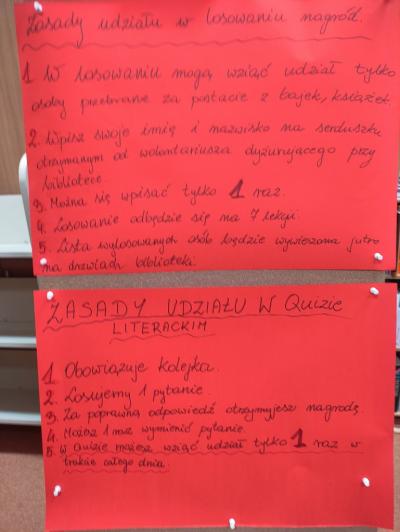 Zasady udziału w losowaniu nagród.
1 W losowaniu mogą wziąć udział tylko
osoby przebrane za postacie z bajek, książek.
2. Wpisz swoje imię i nazwisko na serduszku
otrzymanym od wolontariusza dyżurującego przy
bibliotece.
3. Można się wpisać tylko 1 raz.
4. Losowanie odbędzie się na 7 lekcji.
5. Lista wylosowanych osób będzie wywieszona jutro
na drzwiach biblioteki.
ZASADY UDZIAŁU W QUIZIE
LITERACKIM
1 Obowiązuje kolejka.
2. Losujemy 1 pytanie.
3. Za poprawną odpowiedź otrzymujesz nagrodę.
4. Możesz 1 raz wymienić pytanie.
5. W Quizie możesz wziąć udział tylko 1 raz w
trakcie całego dnia.